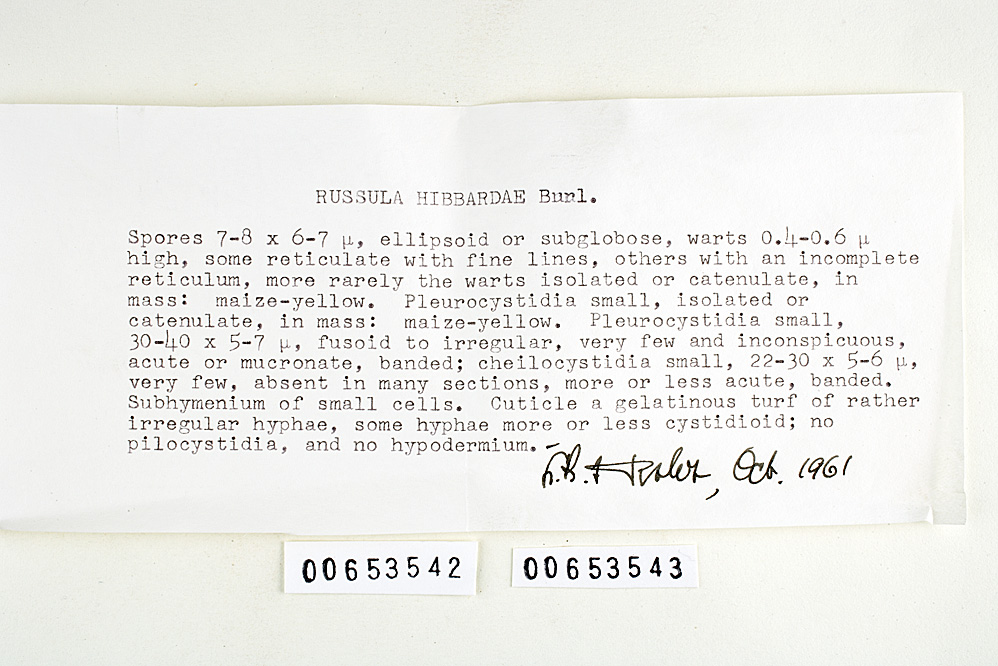 RUSSULA HIBBARDAE Burl.
Spores 7-8 x 6-7 µ, ellipsoid or subglobose, warts 0.4-0.6 µ
high, some reticulate with fine lines, others with an incomplete
reticulum, more rarely the warts isolated or catenulate, in
mass:  maize-yellow.  Pleurocystidia small, isolated or
catenulate, in mass:  maize-yellow.  Pleurocystidia small,
30-40 x 5-7 µ, fusoid to irregular, very few and inconspicuous,
acute or mucronate, banded; cheilocystidia small, 22-30 x 5-6 µ,
very few, absent in many sections, more or less acute, banded.
Subhymenium of small cells.  Cuticle a gelatinous turf of rather
irregular hyphae, some hyphae more or less cystidioid; no
pilocystidia, and no hypodermium.-
L.R. Hesler, Oct. 1961
00653542
00653543